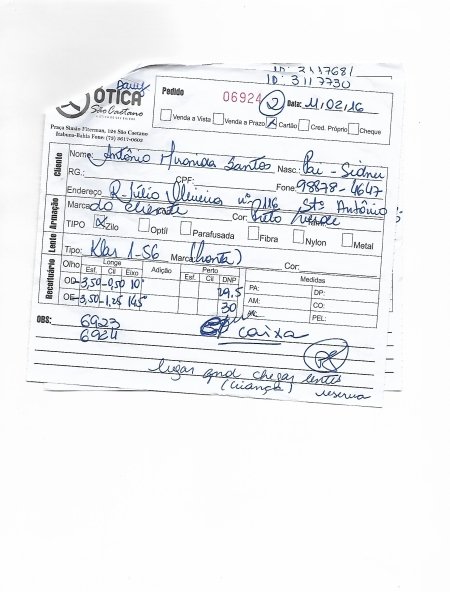 ID: 2117681
ID: 3117730
ÓTICA
São Caetano
Praça Simão Fiterman, 124 São Caetano
Itabuna-Bahia Fone: (73) 3617-0602
Pedido 06924 2 Data: 11/02/16
Venda a Vista Venda a Prazo X Cartão Cred. Próprio Cheque
Cliente
Nome: Antônio Miranda Santos Nasc.: Pai - Sidnei
RG.: CPF: Fone 98878-4647
Endereço R. Júlio Oliveira nº 116 Stº Antônio
Armação
Marca do cliente Cor: preto verde
TIPO X Zilo Optil Parafusada Fibra Nylon Metal
Lente
Tipo: Klar 1-56 Marca: (Pronta) Cor:
Receituário
Olho Longe Adição Perto DNP Medidas
Esf. Cil Eixo Esf. Cil
OD -3,50 -0,50 10° 29.5 PA: DP:
OE -3,50 -1,25 145° 30 AM: CO:
PEL:
OBS: 6923 caixa
6924
ligar qnd chegar lentes
(criança) reserva